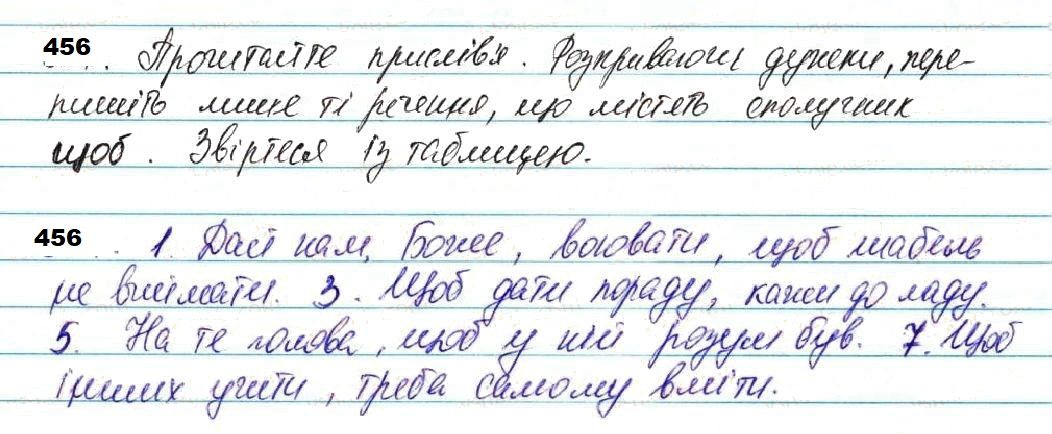 456 Прочитайте прислів'я. Розкриваючи дужки, пере-
пишіть лише ті речення, що містять сполучник
щоб. Звіртеся із таблицею.
456 1. Дай нам, Боже, воювати, щоб шабель
не виймати. 3. Щоб дати пораду, кажи до ладу.
5. На те голова, щоб у ній розум був. 7. Щоб
інших учити, треба самому вміти.